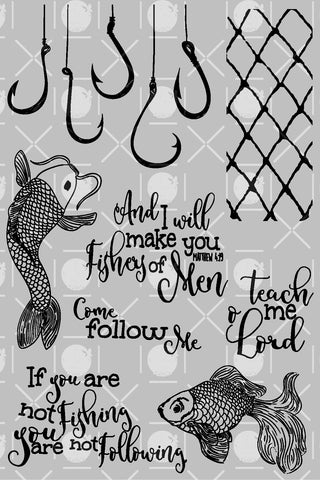 And I will
make you
MATTHEW 4:19
Fishers of
Men
Come
follow Me
teach
me
o
Lord
If you are
not Fishing
you
are not Following